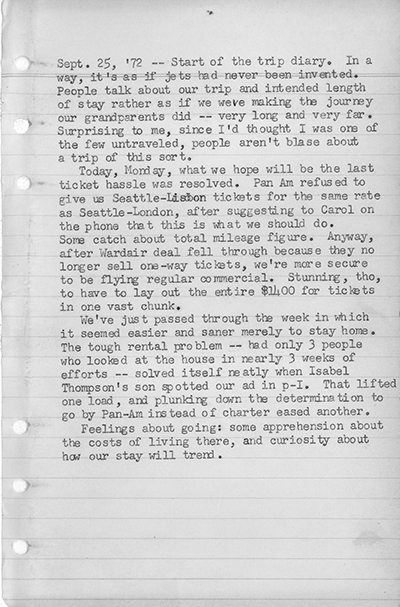 Sept. 25, '72 -- Start of the trip diary. In a
way, it's as if jets had never been invented.
People talk about our trip and intended length
of stay rather as if we weve making the journey
our grandparents did -- very long and very far.
Surprising to me, since I'd thought I was one of
the few untraveled, people aren't blase about
a trip of this sort.
Today, Monday, what we hope will be the last
ticket hassle was resolved. Pan Am refused to
give us Seattle-Lisbon tickets for the same rate
as Seattle-London, after suggesting to Carol on
the phone that this is what we should do.
Some catch about total mileage figure. Anyway,
after Wardair deal fell through because they no
longer sell one-way tickets, we're more secure
to be flying regular commercial. Stunning, tho,
to have to lay out the entire $1400 for tickets
in one vast chunk.
We've just passed through the week in which
it seemed easier and saner merely to stay home.
The tough rental problem -- had only 3 people
who looked at the house in nearly 3 weeks of
efforts -- solved itself neatly when Isabel
Thompson's son spotted our ad in p-I. That lifted
one load, and plunking down the determination to
go by Pan-Am instead of charter eased another.
Feelings about going: some apprehension about
the costs of living there, and curiosity about
how our stay will trend.